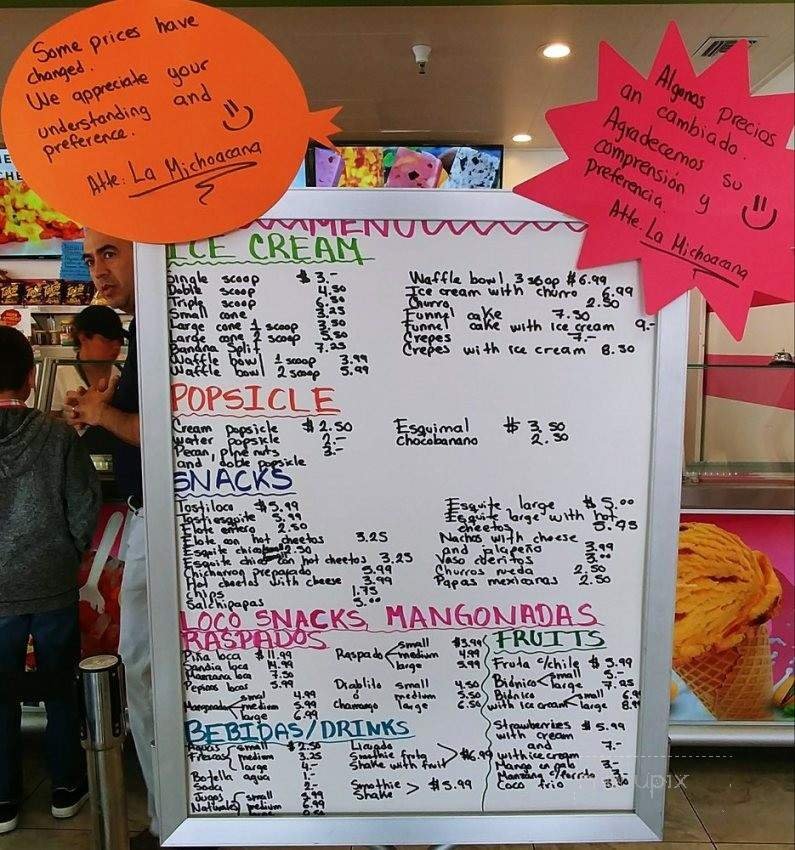 Some prices have
changed.
We appreciate your
understanding and
preference.
Atte: La Michoacana
Algunos precios
an cambiado.
Agradecemos su
comprensión y
preferencia.
Atte. La Michoacana
MENU
ICE CREAM
Single scoop $3.-
Doble scoop 4.50
Triple scoop 6.50
Small cone 3.25
Large cone 1 scoop 3.50
Large cone 2 scoop 5.50
Banana Split 7.25
Waffle bowl 1 scoop 3.99
Waffle bowl 2 scoop 5.99
Waffle bowl 3 scoop $6.99
Ice cream with churro 6.99
Churro 2.50
Funnel cake 7.50
Funnel cake with ice cream 9.-
Crepes 7.-
Crepes with ice cream 8.50
POPSICLE
Cream popsicle $2.50
water popsicle 2.-
Pecan, pine nuts 3.-
and doble popsicle
Esquimal $3.50
Chocobanano 2.50
SNACKS
Tostiloco $5.99
Tostiesquite 5.99
Elote entero 2.50
Elote con hot cheetos 3.25
Esquite chico 2.50
Esquite chico con hot cheetos 3.25
Chicharron preparado 5.99
Hot cheetos with cheese 3.99
chips 1.75
Salchipapas 5.00
Esquite large $5.00
Esquite large with hot
cheetos 5.95
Nachos with cheese
and jalapeño 3.99
Vaso cueritos 3.00
Churros rueda 2.50
Papas mexicanas 2.50
LOCO SNACKS, MANGONADAS
RASPADOS
Piña loca $11.99
Sandia loca 14.99
Manzana loca 7.50
Pepinos locos 5.99
Mangonada small 4.99
medium 5.99
large 6.99
Raspado small $3.99
medium 4.99
large 5.99
Diablito small 4.50
o medium 5.50
chamango large 6.50
FRUITS
Fruta c/chile $5.99
Bionico small 5.-
large 7.25
Bionico small
with ice cream large
Strawberries $5.99
with cream
and 7.-
with ice cream
Mango en palo 3.-
Manzana c/forrito 3.-
Coco frio
BEBIDAS/DRINKS
Aguas small $2.50
Frescas medium 3.25
large 4.-
Botella agua 1.-
Soda 2.-
Jugos small
Naturales medium
large
Licuado
Smoothie fruta $6.99
Shake with fruit
Smoothie $5.99
Shake